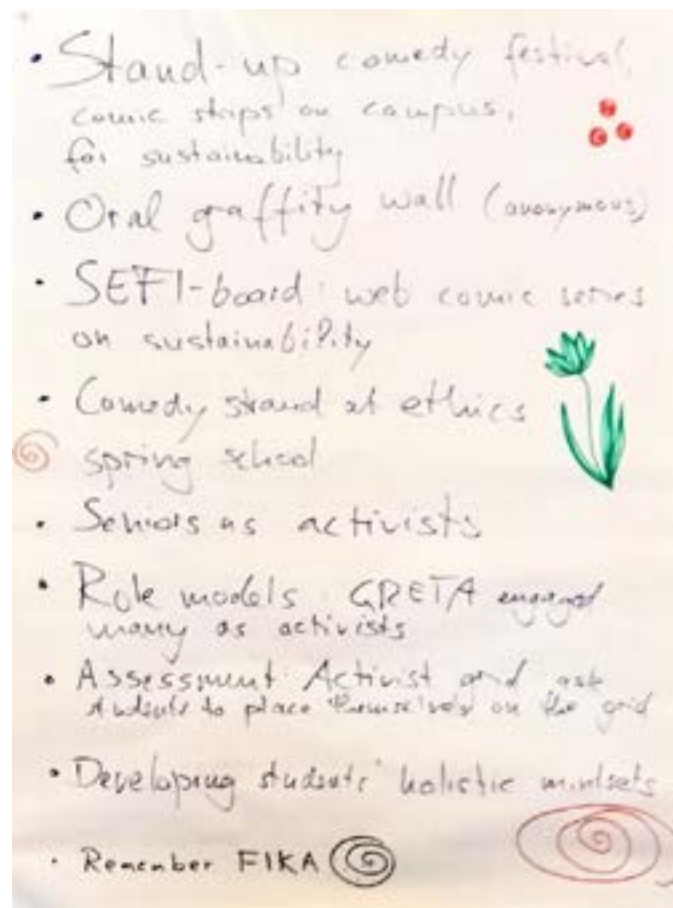 • Stand-up comedy festival,
comic strips on campus,
for sustainability
• Oral graffity wall (anonymous)
• SEFI-board: web comic series
on sustainability
• Comedy strand at ethics
spring school
• Seniors as activists
• Role models: GRETA engaged
many as activists
• Assessment: Activist grid ask
students to place themselves on the grid
• Developing students' holistic mindsets
• Remember FIKA